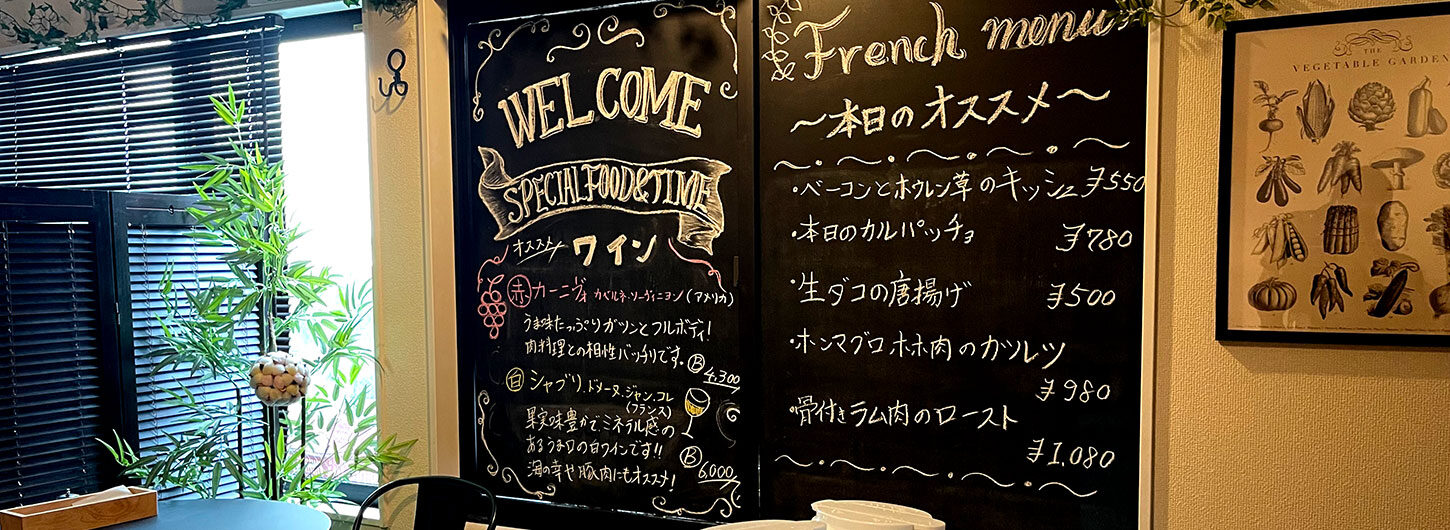 WELCOME
SPECIAL FOOD & TIME
オススメ ワイン
赤 カーニヴォ カベルネ・ソーヴィニヨン (アメリカ)
うま味たっぷりガツンとフルボディ!
肉料理との相性バッチリです。 Ⓑ 4,300
白 シャブリ.ドメーヌ.ジャン.コレ
(フランス)
果実味豊かでミネラル感の
あるうま口の白ワインです!!
海の幸や豚肉にもオススメ! Ⓑ 6,000
French menu
〜本日のオススメ〜
・ベーコンとホウレン草のキッシュ ¥550
・本日のカルパッチョ ¥780
・生ダコの唐揚げ ¥500
・ホンマグロホホ肉のカツレツ
¥980
・骨付きラム肉のロースト
¥1,080
THE
VEGETABLE GARDEN